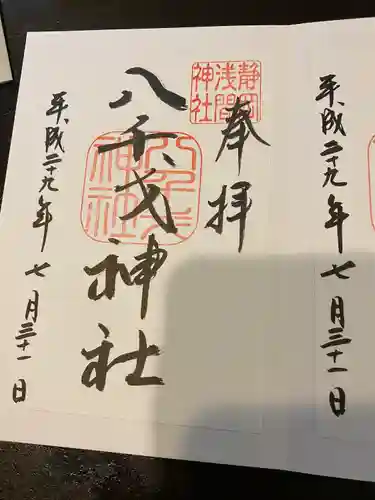 平成二十九年七月三十一日
奉拝
静岡
浅間
神社
八千戈神社
平成二十九年七月三十一日